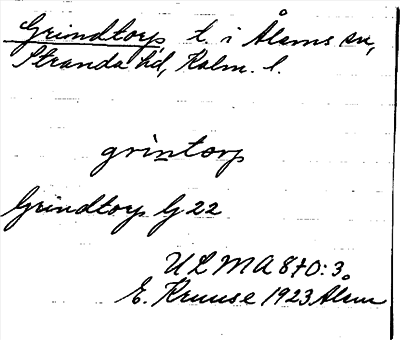 Grindtorp, t. i Ålems sn,
Stranda hd, Kalm. l.
grintorp
Grindtorp G 22
ULMA 870:3
E. Kruuse 1923 Ålem